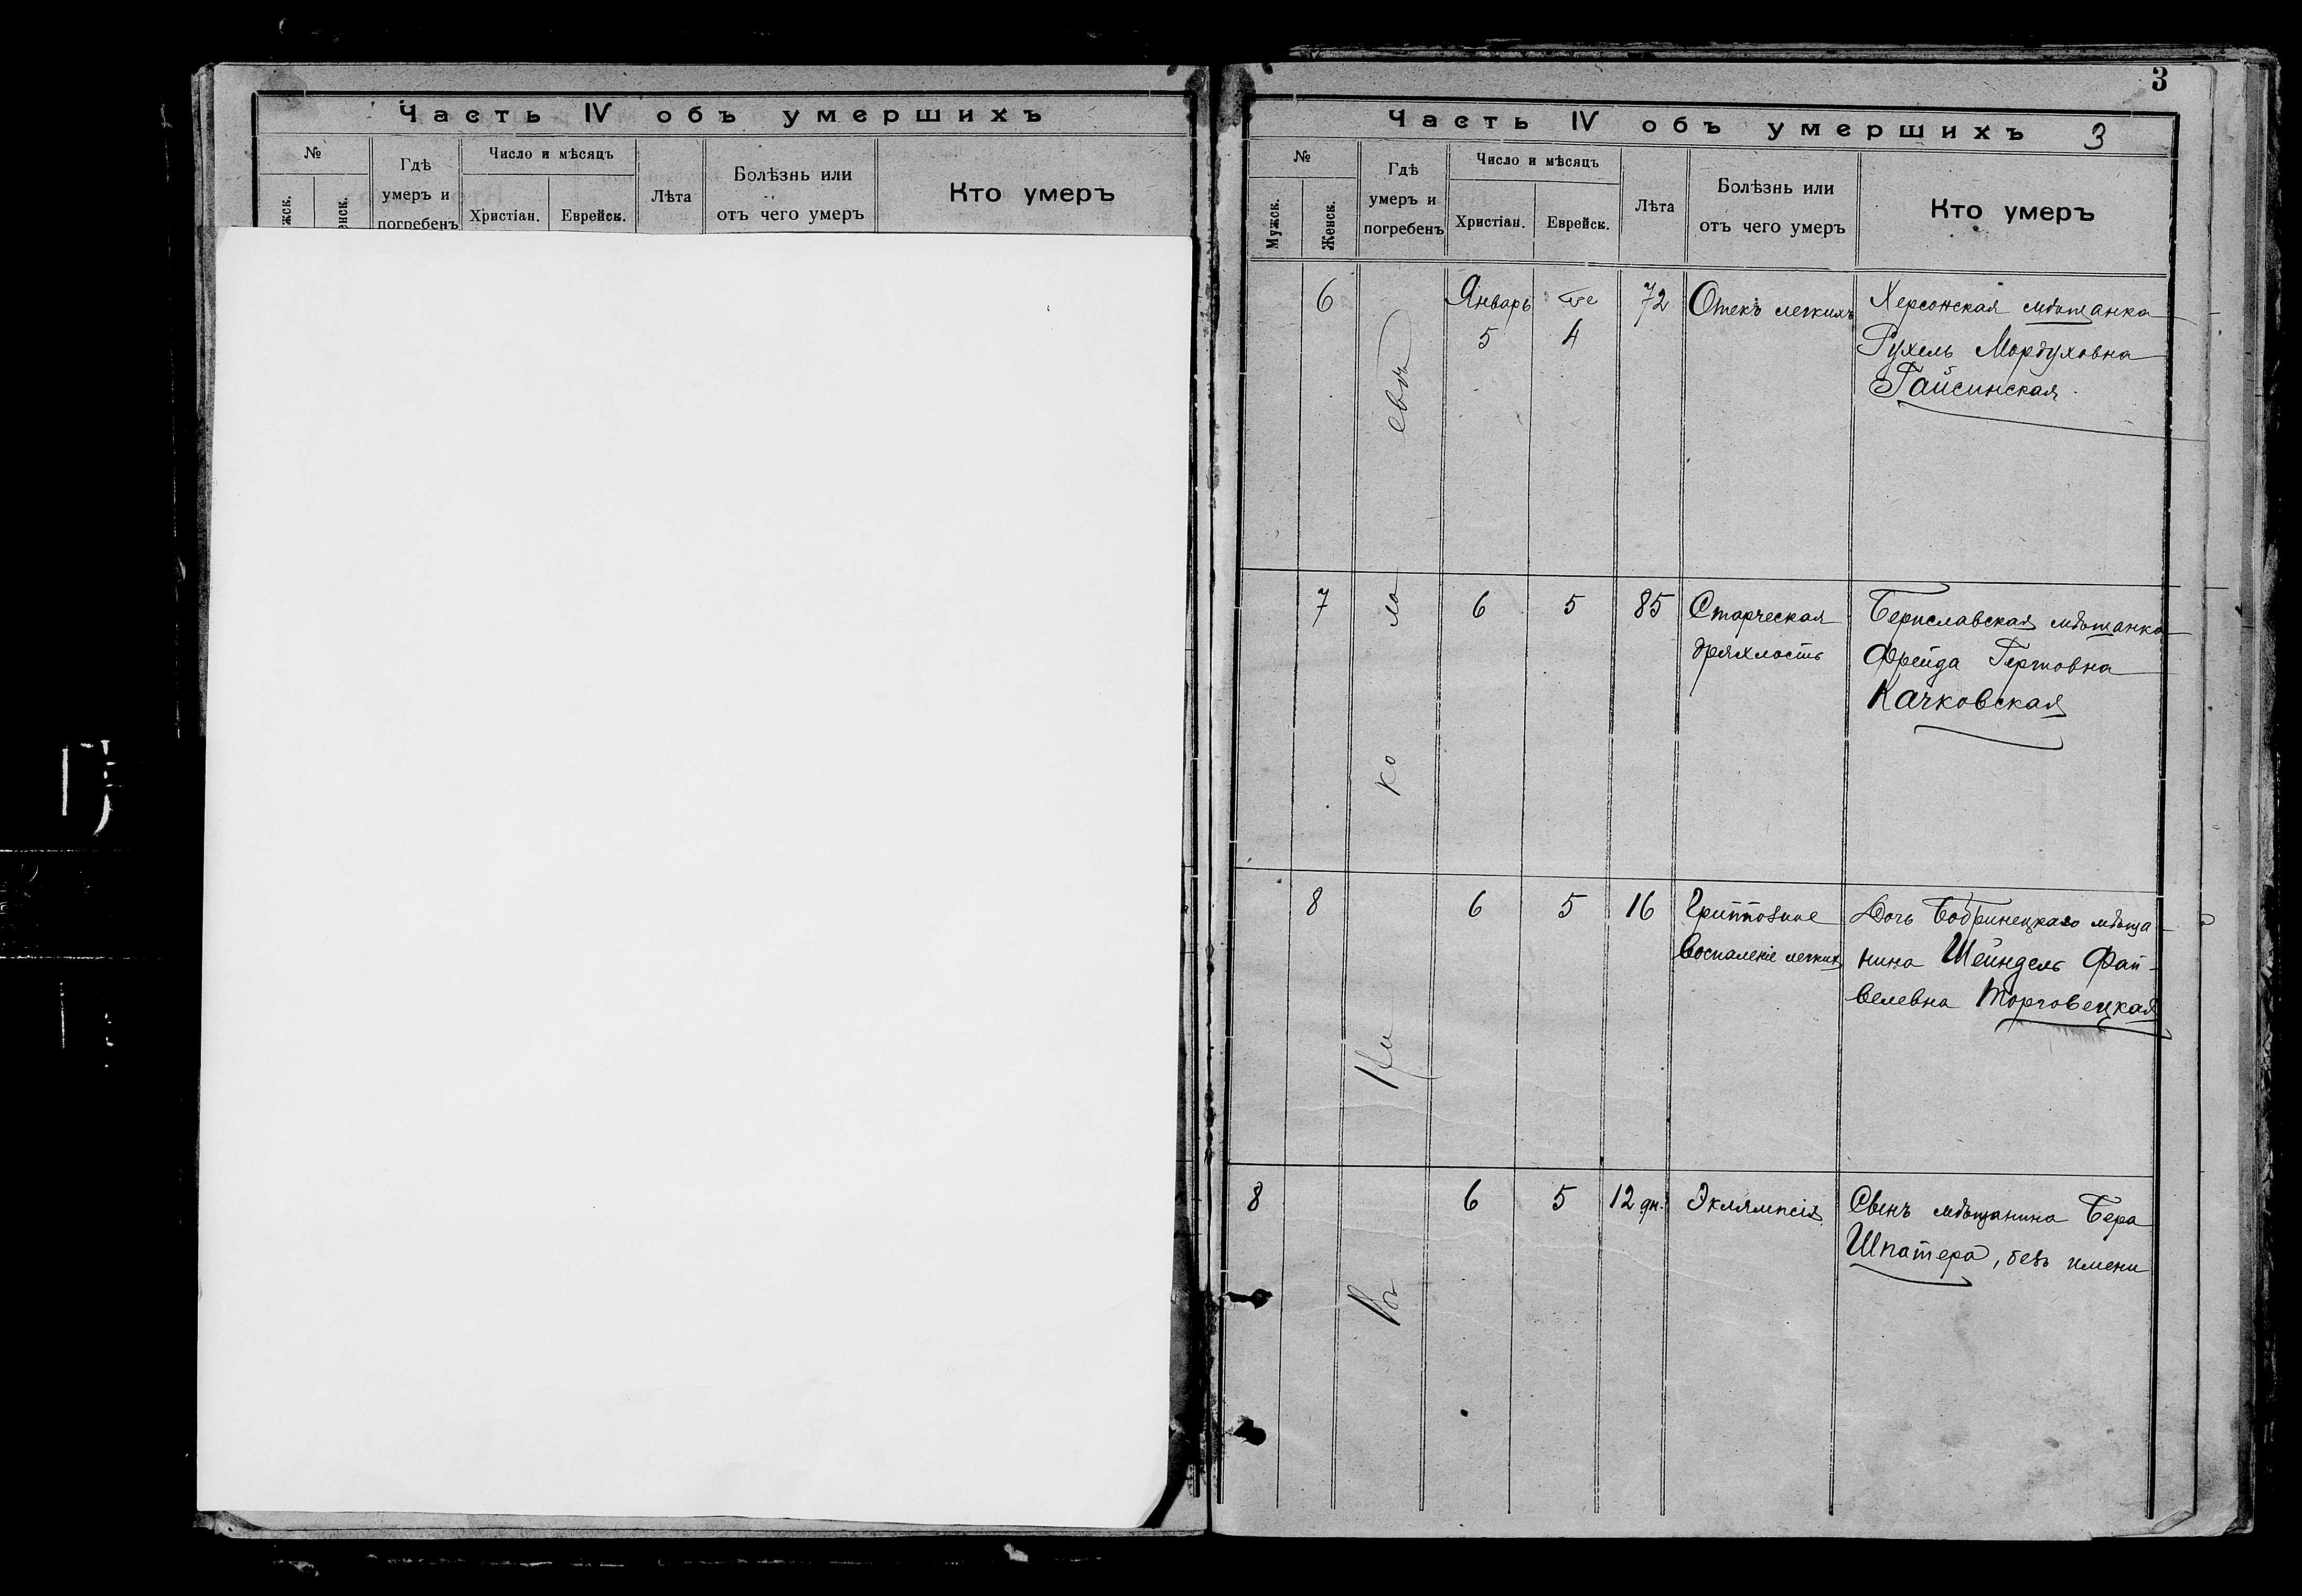 Часть IV объ умершихъ
№
Гдѣ умеръ и погребенъ
Число и мѣсяцъ
Христіан.
Еврейск.
Лѣта
Болѣзнь или отъ чего умеръ
Кто умеръ
3
Часть IV объ умершихъ 3
№
Мужск.
Женск.
Гдѣ умеръ и погребенъ
Число и мѣсяцъ
Христіан.
Еврейск.
Лѣта
Болѣзнь или отъ чего умеръ
Кто умеръ
Въ Николаевѣ
6 Январь 72 Отекъ легкихъ Херсонская мѣщанка
5 4 Рухель Мордуховна
Гайсинская
7 6 5 85 Старческая Бериславская мѣщанка
дряхлость Фрейда
Качковская
8 6 5 16 Гриппозное Дочь Бобринецкаго мѣща-
Воспаленіе легкихъ нина Шейндель Фай-
велевна Торговецкая
8 6 5 12 дн. Эклямпсія Сынъ мѣщанина Бера
Шпатера, безъ имени